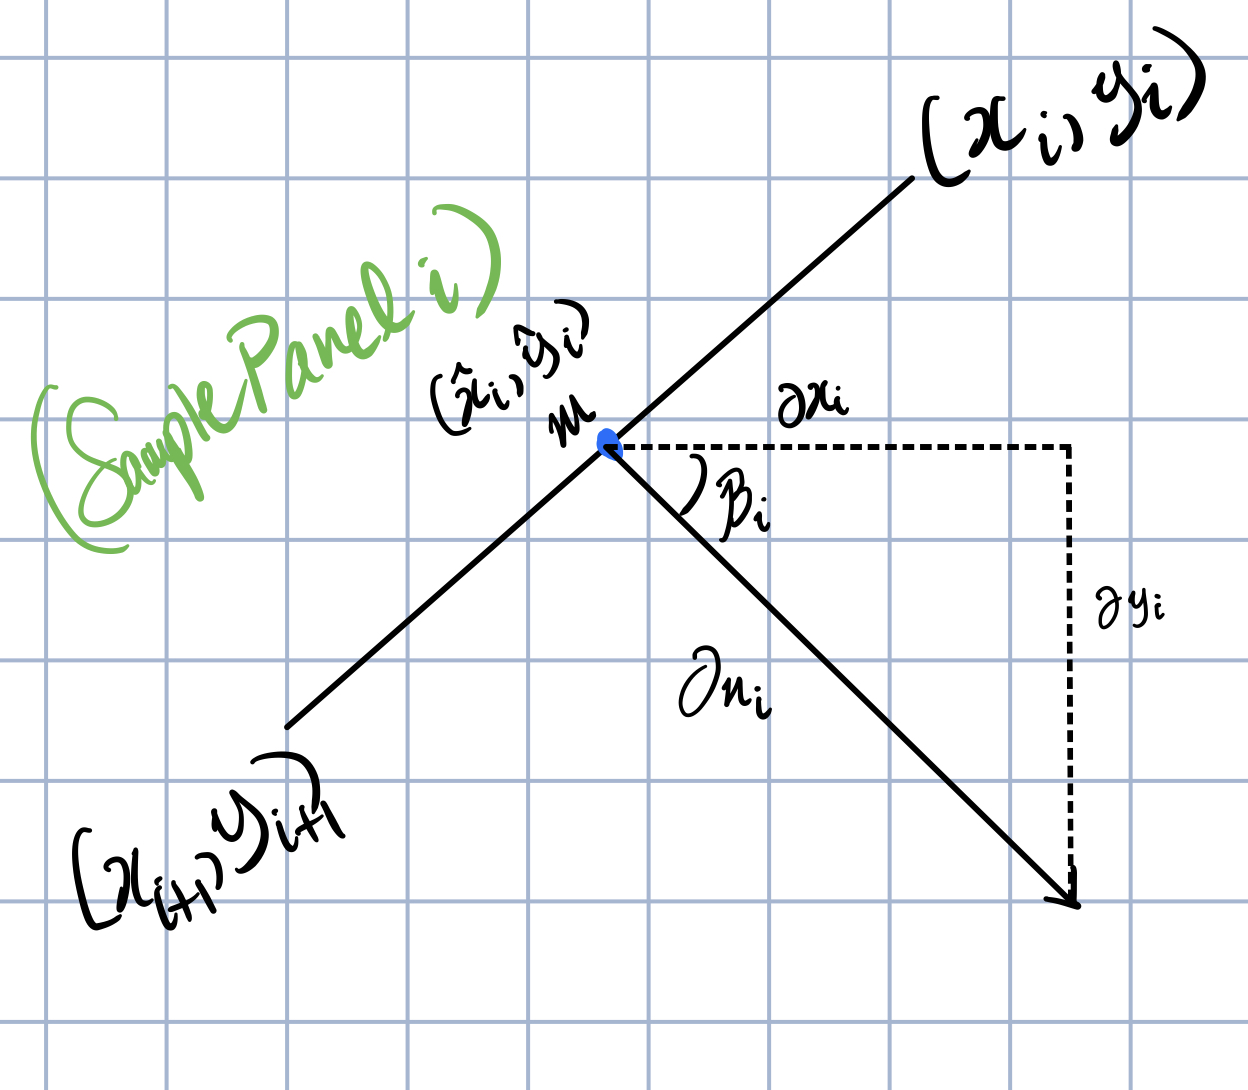 (xᵢ, yᵢ)
(Sample Panel i)
(x̂ᵢ, ŷᵢ)
m
∂xᵢ
βᵢ
∂yᵢ
∂nᵢ
(xᵢ₊₁, yᵢ₊₁)